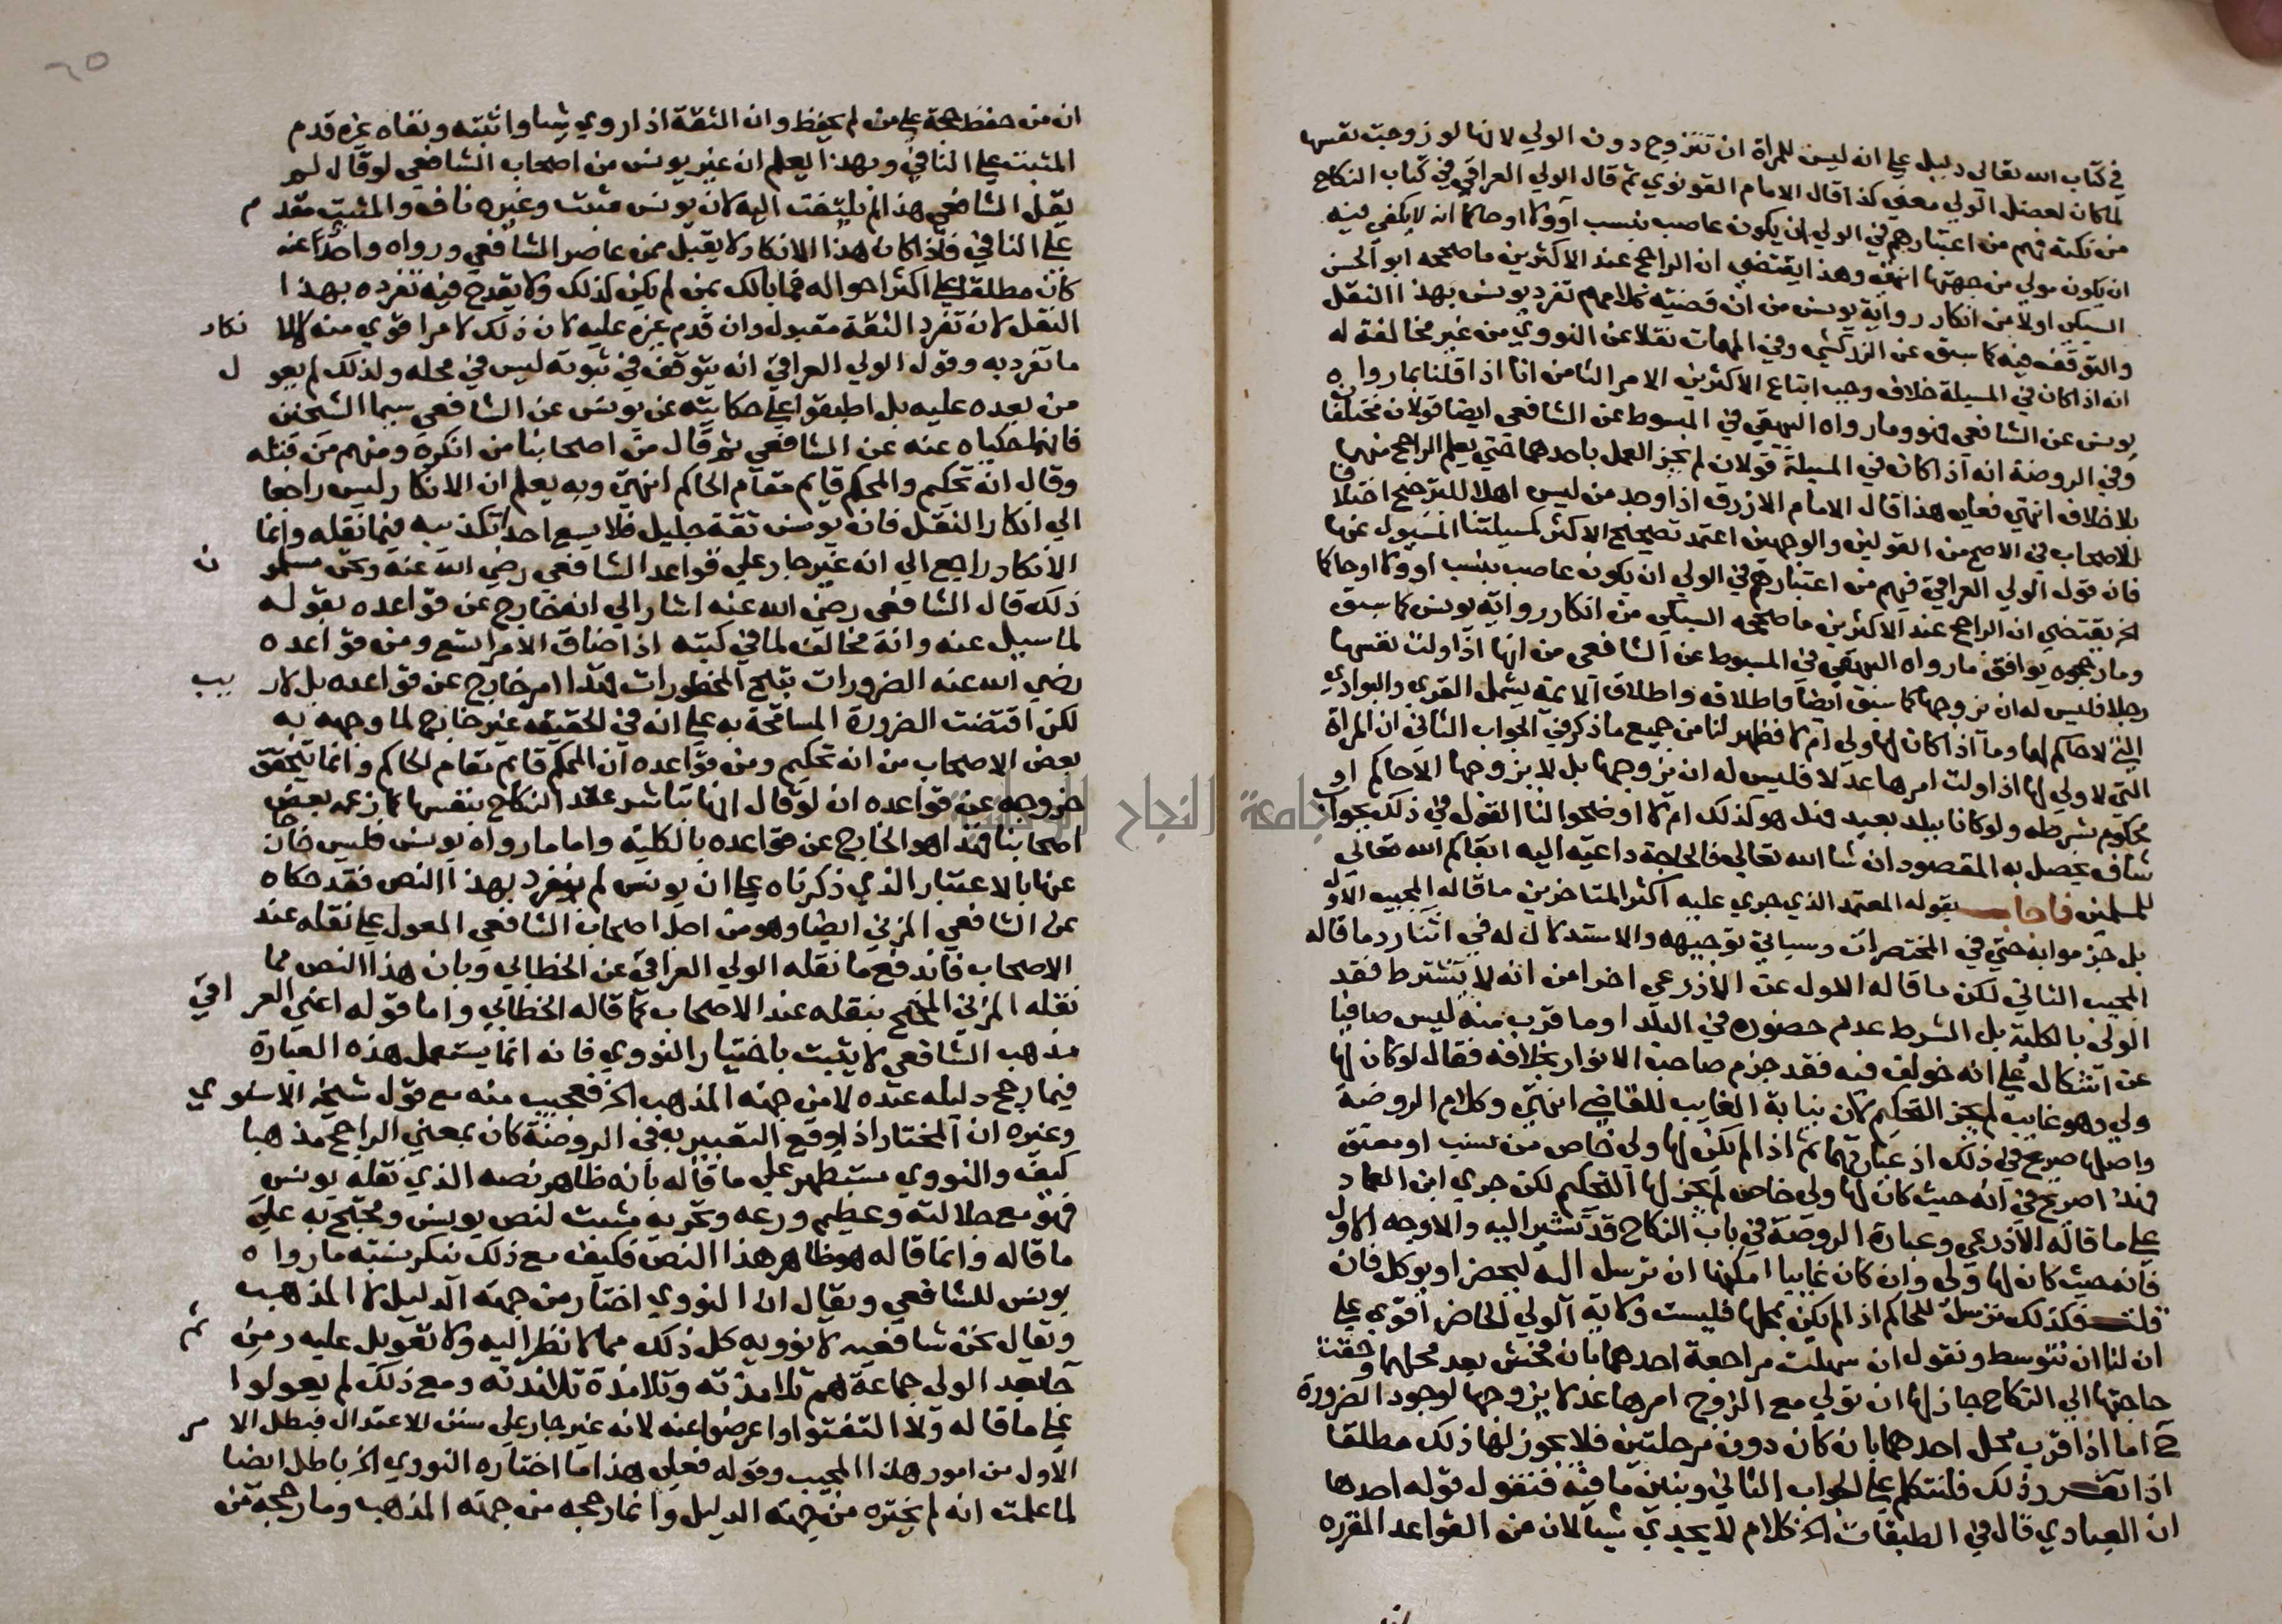 في كتاب الله تعالى دليل على انه ليس للمراة ان تتزوج دون الولي لانها لو زوجت نفسها
لما كان لعضل الولي معني كذا قال الامام القونوي ثم قال الولي العراقي في كتاب النكاح
من نكته فهم من اعتبارهم في الولي ان يكون عاصب بنسب أو ولا او حاكما انه لا يكفي فيه
ان يكون مولي من جهتها انتهي وهذا يقتضي ان الراجح عند الاكثرين ما صححه ابو الحسن
السبكي اولا من انكار رواية يونس من ان قضية كلامهم تفرد يونس بهذا النقل
والتوقف فيه كما سبق عن الزركشي وفي المهمات نقلا عن النووي من غير مخالفة له
انه اذا كان في المسيلة خلاف وجب اتباع الاكثرين الامر الثامن انا اذا قلنا بما رواه
يونس عن الشافعي فهو وما رواه البيهقي في المبسوط عن الشافعي ايضا قولان مختلفان
وفي الروضة انه اذا كان في المسيلة قولان لم يجز العمل باحدهما حتي يعلم الراجح منهما
بلا خلاف انتهي فعلي هذا قال الامام الازرق اذا وجد من ليس اهلا للترجيح اختلافا
للاصحاب في الاصح من القولين والوجهين اعتمد تصحيح الاكثر كمسيلتنا المسيول عنها
فان قول الولي العراقي فهم من اعتبارهم في الولي ان يكون عاصب بنسب او ولا او حاكما
الخ يقتضي ان الراجح عند الاكثرين ما صححه السبكي من انكار رواية يونس كما سبق
وما رجحوه يوافق ما رواه البيهقي في المبسوط عن الشافعي من انها اذا ولت نفسها
رجلا فليس له ان يزوجها كما سبق ايضا واطلاقه واطلاق الايمة يشمل القري والبوادي
التي لا حاكم لها وما اذا كان لها ولي ام لا فظهر لنا من جميع ما ذكر في الجواب الثاني ان المراة
التي لا ولي لها اذا ولت امرها عدلا فليس له ان يزوجها بل لا يزوجها الا حاكم او
محكوم بشرطه ولو كانا ببلد بعيد فهل هو كذلك ام لا اوضحوا لنا القول في ذلك بجواب
شاف يحصل به المقصود ان شا الله تعالي فالحاجة داعية اليه ابقاكم الله تعالي
للمسلمين فاجاب بقوله المعتمد الذي جري عليه اكثر المتاخرين ما قاله المجيب الاول
بل جزموا به حتي في المختصرات وسياتي توجيهه والاستدلال له في اثنا رد ما قاله
المجيب الثاني لكن ما قاله الاول عن الاذرعي اخرا من انه لا يشترط فقد
الولي بالكلية بل الشرط عدم حضوره في البلد او ما قرب منه ليس صافيا
عن اشكال علي انه خولف فيه فقد جزم صاحب الانوار بخلافه فقال لو كان لها
ولي وهو غايب لم يجز التحكيم لان نيابة الغايب للقاضي انتهي وكلام الروضة
واصلها صريح في ذلك اذ عبارتهما ثم اذا لم يكن لها ولي خاص من نسب او معتق
فهذا صريح في انه حيث كان لها ولي خاص لم يجز لها التحكيم لكن جري ابن العماد
علي ما قاله الاذرعي وعبارة الروضة في باب النكاح قد تشير اليه والاوجه الاول
فانه حيث كان لها ولي وان كان غايبا امكنها ان ترسل اليه ليحضر او يوكل فان
قلت فكذلك ترسل للحاكم اذا لم يكن بمحلها فليست ولاية الولي الخاص اقوي علي
ان لنا ان نتوسط ونقول ان سهلت مراجعة احدهما بان لم يخش بعد محلهما وحقت
حاجتها الي النكاح جاز لها ان تولي مع الزوج امرها عدلا يزوجها لوجود الضرورة
ح اما اذا قرب محل احدهما بان كان دون مرحلتين فلا يجوز لها ذلك مطلقا
اذا تقرر ذلك فلنتكلم علي الجواب الثاني ونبين ما فيه فنقول قوله احدها
ان العبادي قال في الطبقات الخ كلام لا يجدي شيا لان من القواعد المقررة
ان من حفظ حجة علي من لم يحفظ وان الثقة اذا روي شيا واثبته ونفاه غيره قدم
المثبت علي النافي وبهذا يعلم ان غير يونس من اصحاب الشافعي لو قال لم
يقل الشافعي هذا لم يلتفت اليه لان يونس مثبت وغيره ناف والمثبت مقدم
علي النافي فاذا كان هذا الانكار لا يقبل ممن عاصر الشافعي ورواه واخذ عنه
كان مطلقا علي اكثر احواله فما بالك بمن لم يكن كذلك ولا يقدح فيه تفرده بهذا
النقل لان تفرد الثقة مقبول وان قدم غيره عليه لان ذلك لامر اقوي منه لا لانكار
ما تفرد به وقول الولي العراقي انه يتوقف في ثبوته ليس في محله ولذلك لم يعول
من بعده عليه بل اطبقوا علي حكايته عن يونس عن الشافعي سيما الشيخين
فانهما حكياه عنه عن الشافعي ثم قال من اصحابنا من انكره ومنهم من قبله
وقال انه تحكيم والمحكم قايم مقام الحاكم انتهي وبه يعلم ان الانكار ليس راجعا
الي انكار النقل فانه يونس ثقة جليل فلا يسع احد تكذيبه فيما نقله وانما
الانكار راجع الي انه غير جار علي قواعد الشافعي رضي الله عنه ونحن مسلمون
ذلك قال الشافعي رضي الله عنه اشار الي انه خارج عن قواعده بقوله
لما سيل عنه وانه مخالف لما في كتبه اذا ضاق الامر اتسع ومن قواعده
رضي الله عنه الضرورات تبيح المحظورات فهذا امر خارج عن قواعده بلا ريب
لكن اقتضت الضرورة المسامحة به علي انه في الحقيقة غير خارج لما وجهه به
بعض الاصحاب من انه تحكيم ومن قواعده ان المحكم قايم مقام الحاكم وانما يتحقق
خروجه عن قواعده ان لو قال انها تباشر عقد النكاح بنفسها كما زعمه بعض
اصحابنا فهذا هو الخارج عن قواعده بالكلية واما ما رواه يونس فليس خارجا
عنها بالاعتبار الذي ذكرناه علي ان يونس لم ينفرد بهذا النص فقد حكاه
عن الشافعي المزني ايضا وهو من اجل اصحاب الشافعي المعول علي نقله عند
الاصحاب فاندفع ما نقله الولي العراقي عن الخطابي وبان هذا النص مما
نقله المزني المحتج بنقله عند الاصحاب كما قاله الخطابي واما قوله اعني العراقي
مذهب الشافعي لا يثبت باختيار النووي فانه انما يستعمل هذه العبارة
فيما رجح دليله عنده لا من جهة المذهب الخ فعجيب منه مع قول شيخه الاسنوي
وغيره ان المختار اذا وقع التعبير به في الروضة كان بمعني الراجح مذهبا
كيف والنووي مستظهر علي ما قاله بانه ظاهر نصه الذي نقله يونس
فهو مع جلالته وعظيم ورعه وتحريه مثبت لنص يونس ومحتج به علي
ما قاله وانما قاله هو ظاهر هذا النص فكيف مع ذلك ننكر نسبته ما رواه
يونس للشافعي ويقال ان النووي اختار من جهة الدليل لا المذهب
ويقال نحن شافعية لا نووية كل ذلك مما لا نظر اليه ولا تعويل عليه ومن ثم
جا بعد الولي جماعة هم تلامذته وتلامذة تلامذته ومع ذلك لم يعولوا
علي ما قاله ولا التفتوا واعرضوا عنه لانه غير جار علي سنن الاعتدال فبطل الامر
الاول من امور هذا المجيب وقوله فعلي هذا ما اختاره النووي الخ باطل ايضا
لما علمت انه لم يختره من جهة الدليل وانما رجحه من جهة المذهب وما رجحه من